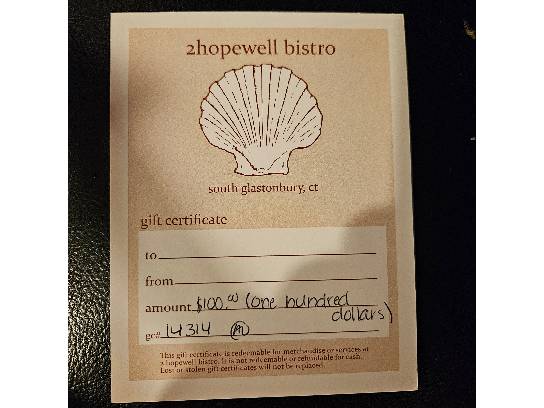 2hopewell bistro
south glastonbury, ct
gift certificate
to
from
amount $100.00 (one hundred
dollars)
gc# 14314
This gift certificate is redeemable for merchandise or services at
2 hopewell bistro. It is not redeemable or refundable for cash.
Lost or stolen gift certificates will not be replaced.